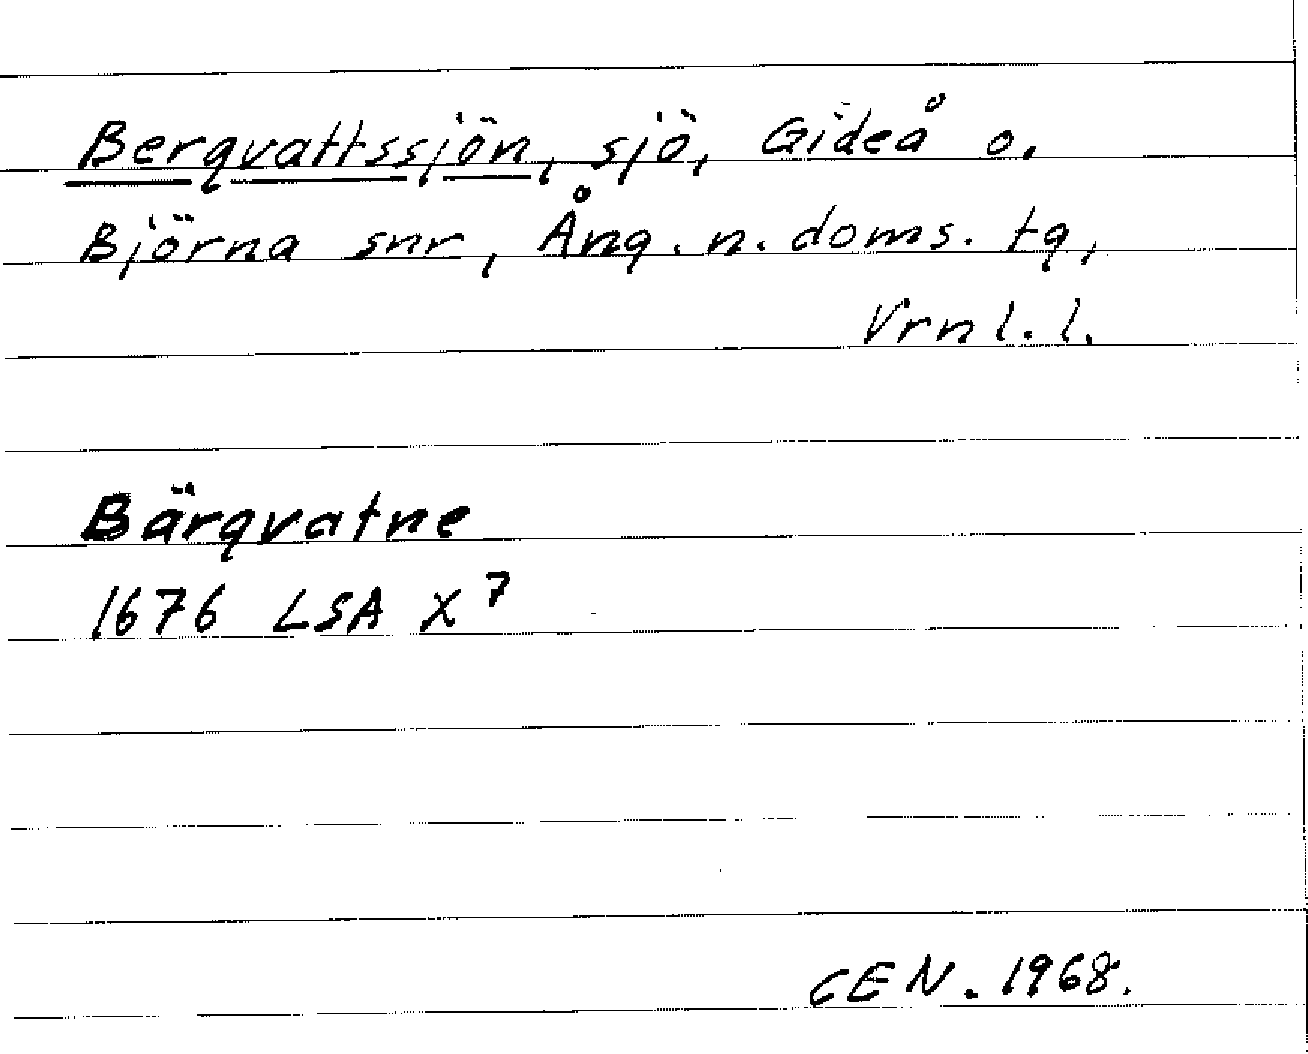 Bergvattssjön, sjö, Gideå o.
Björna snr, Ång. n. doms. tg,
Vrnl. l.
Bärgvatne
1676 LSA X 7
CEN. 1968.